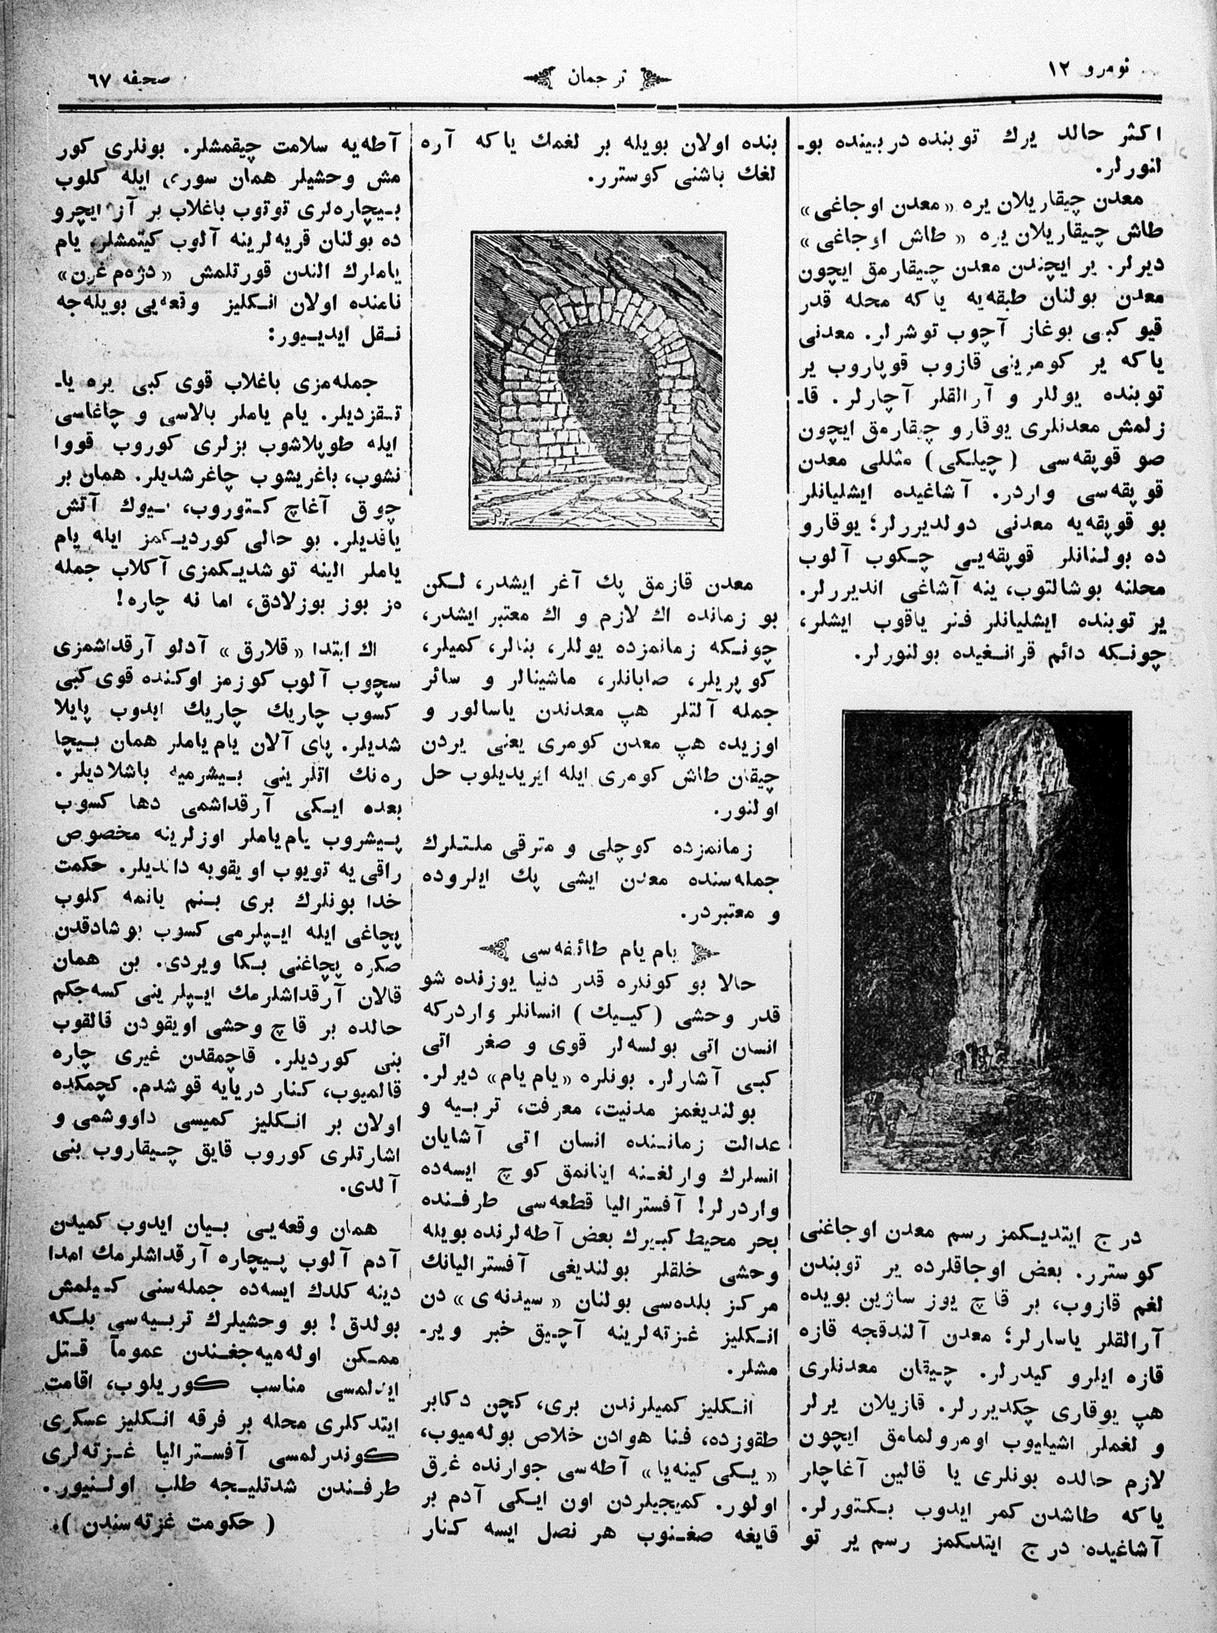 نومرو ١٢
ترجمان
صحیفه ٦٧
اكثر حالد یرك توبنده دربینده بو-
لنورلر.
معدن چیقاریلان یره «معدن اوجاغی»
طاش چیقاریلان یره «طاش اوجاغی»
دیرلر. یر ایچندن معدن چیقارمق ایچون
معدن بولنان طبقه‌یه یاكه محله قدر
قیو كبی بوغاز آچوب توشرلر. معدنی
یاكه یر كومرینی قازوب قوپاروب یر
توبنده یوللر و آرالقلر آچارلر. قا-
زلمش معدنلری یوقارو چیقارمق ایچون
صو قوپقه‌سی (چیلكی) مثللی معدن
قوپقه‌سی واردر. آشاغیده ایشلیانلر
بو قوپقه‌یه معدنی دولدیررلر؛ یوقارو
ده بولنانلر قوپقه‌یی چكوب آلوب
محلنه بوشالتوب، ینه آشاغی اندیررلر.
یر توبنده ایشلیانلر فنر یاقوب ایشلر،
چونكه دائم قرانغیده بولنورلر.
درج ایتدیكمز رسم معدن اوجاغنی
كوسترر. بعض اوجاقلرده یر توبندن
لغم قازوب، بر قاچ یوز ساژین بویده
آرالقلر یاسارلر؛ معدن آلندقجه قازه
قازه ایلرو كیدرلر. چیقان معدنلری
هپ یوقاری چكدیررلر. قازیلان یرلر
و لغملر اشیلیوب اومرولمامق ایچون
لازم حالده بونلری یا قالین آغاچلر
یاكه طاشدن كمر ایدوب بكتورلر.
آشاغیده درج ایتدیكمز رسم یر تو
بنده اولان بویله بر لغمك یاكه آره
لغك باشنی كوسترر.
معدن قازمق پك آغر ایشدر، لكن
بو زمانده اك لازم و اك معتبر ایشدر،
چونكه زمانمزده یوللر، بنالر، كمیلر،
كوپریلر، صابانلر، ماشینالر و سائر
جمله آلتلر هپ معدندن یاسالور و
اوزیده هپ معدن كومری یعنی یردن
چیقان طاش كومری ایله ایریدیلوب حل
اولنور.
زمانمزده كوچلی و مترقی ملتلرك
جمله‌سنده معدن ایشی پك ایلروده
و معتبردر.
یام یام طائفه‌سی
حالا بو كونلره قدر دنیا یوزنده شو
قدر وحشی (كییك) انسانلر واردركه
انسان اتی بولسه‌لر قوی و صغر اتی
كبی آشارلر. بونلره «یام یام» دیرلر.
بولندیغمز مدنیت، معرفت، تربیه و
عدالت زماننده انسان اتی آشایان
انسلرك وارلغنه اینانمق كوچ ایسه‌ده
واردرلر! آفسترالیا قطعه‌سی طرفنده
بحر محیط كبیرك بعض آطه‌لرنده بویله
وحشی خلقلر بولندیغی آفسترالیانك
مركز بلده‌سی بولنان «سیدنه‌ی» دن
انكلیز غزته‌لرینه آچیق خبر ویر-
مشلر.
انكلیز كمیلرندن بری، كچن دكابر
طقوزده، فنا هوادن خلاص بوله‌میوب،
«یكی كینه‌یا» آطه‌سی جوارنده غرق
اولور. كمیجیلردن اون ایكی آدم بر
قایغه صغنوب هر نصل ایسه كنار
آطه‌یه سلامت چیقمشلر. بونلری كور
مش وحشیلر همان سوری ایله كلوب
بیچاره‌لری توتوب باغلاب بر آز ایچرو
ده بولنان قریه‌لرینه آلوب كیتمشلر. یام
یاملرك الندن قورتلمش «دژه‌م غرن»
نامنده اولان انكلیز وقعه‌یی بویله‌جه
نقل ایدییور:
جمله‌مزی باغلاب قوی كبی یره یا-
تقزدیلر. یام یاملر بالاسی و چاغاسی
ایله طوپلاشوب بزلری كوروب قووا
نشوب، باغریشوب چاغرشدیلر. همان بر
چوق آغاچ كتوروب، بیوك آتش
یاقدیلر. بو حالی كوردیكمز ایله یام
یاملر الینه توشدیكمزی آكلاب جمله
مز بوز بوزلادق، اما نه چاره!
اك ابتدا «قلارق» آدلو آرقداشمزی
سچوب آلوب كوزمز اوكنده قوی كبی
كسوب چاریك چاریك ایدوب پایلا
شدیلر. پای آلان یام یاملر همان بیچا
ره‌نك اتلرینی بیشرمیه باشلادیلر.
بعده ایكی آرقداشمی دها كسوب
پیشروب یام‌یاملر اوزلرینه مخصوص
راقی یه تویوب اویقویه دالدیلر. حكمت
خدا بونلرك بری بنم یانمه كلوب
پچاغی ایله ایپلرمی كسوب بوشادقدن
صكره پچاغنی بكا ویردی. بن همان
قالان آرقداشلرمك ایپلرینی كسه‌جكم
حالده بر قاچ وحشی اویقودن قالقوب
بنی كوردیلر. قاچمقدن غیری چاره
قالمیوب، كنار دریایه قوشدم. كچمكده
اولان بر انكلیز كمیسی داووشمی و
اشارتلری كوروب قایق چیقاروب بنی
آلدی.
همان وقعه‌یی بیان ایدوب كمیدن
آدم آلوب بیچاره آرقداشلرمك امدا
دینه كلدك ایسه‌ده جمله‌سنی كیلمش
بولدق! بو وحشیلرك تربیه‌سی بلكه
ممكن اوله‌میه‌جغندن عموماً قتل
ایدلمسی مناسب كوریلوب، اقامت
ایتدكلری محله بر فرقه انكلیز عسكری
كوندرلمسی آفسترالیا غزته‌لری
طرفندن شدتلیجه طلب اولنیور.
(حكومت غزته‌سندن).